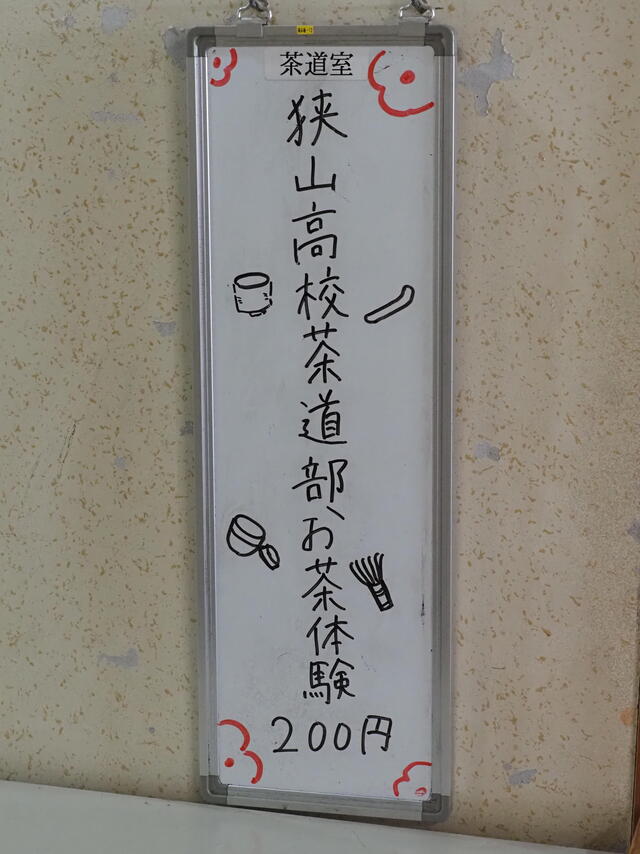 茶道室
狭山高校茶道部、お茶体験
200円